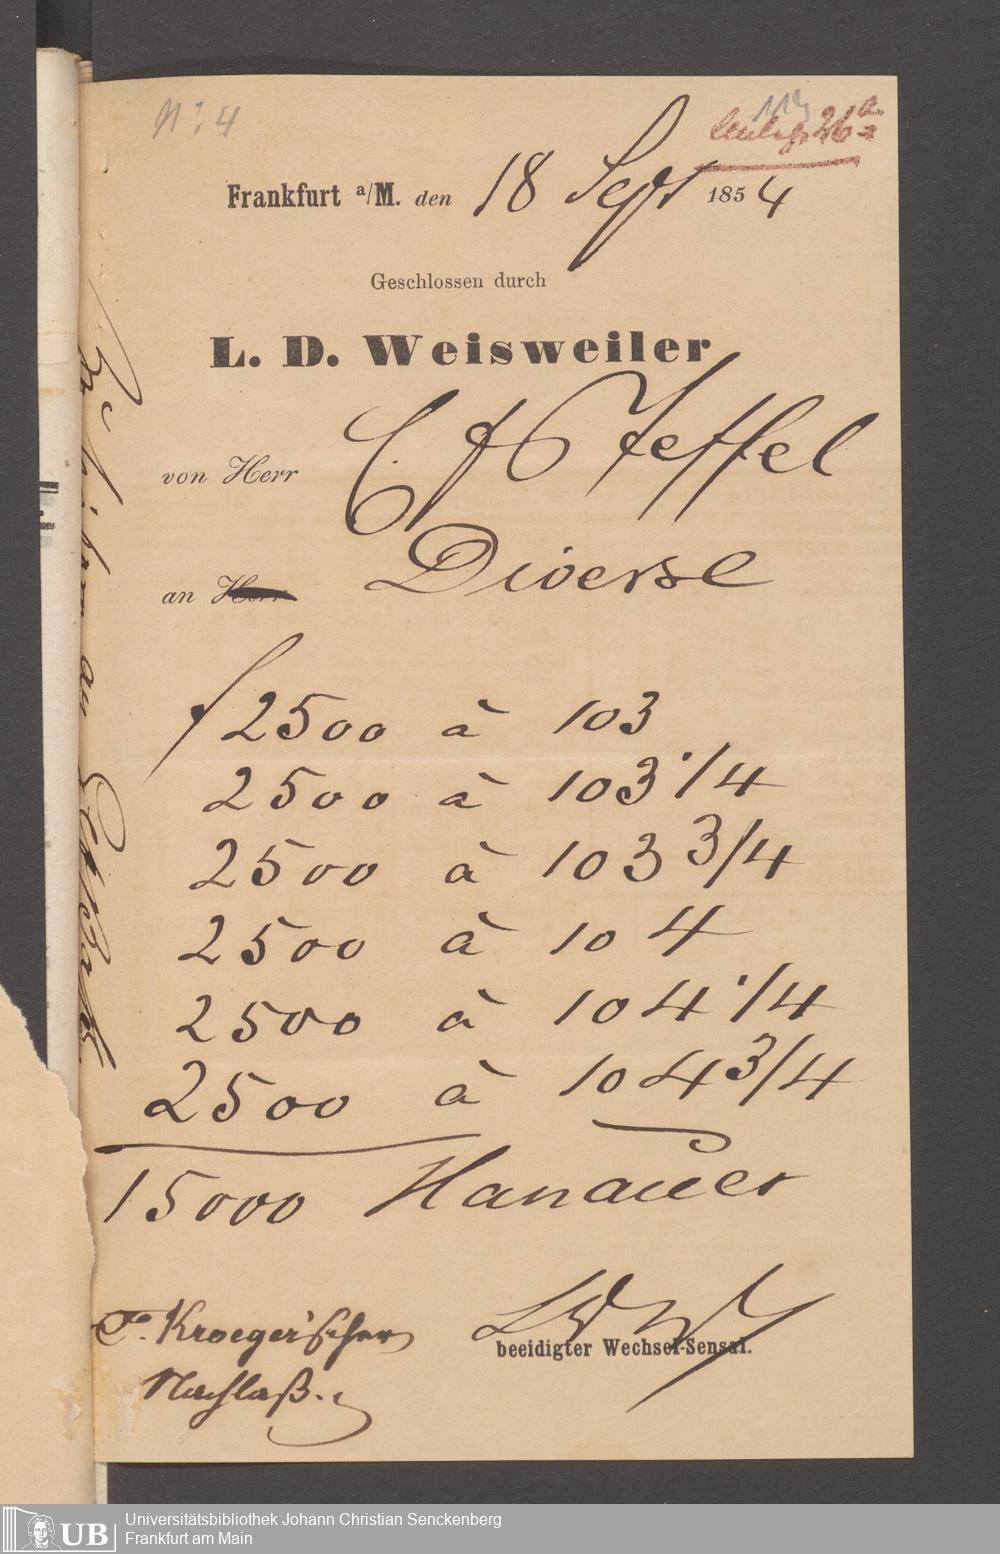 N: 4
26
Frankfurt a/M. den 18 Sept 1854
Geschlossen durch
L. D. Weisweiler
von Herr C. F. Steffel
an Herr Diverse
f 2500 à 103
2500 à 103 1/4
2500 à 103 3/4
2500 à 104
2500 à 104 1/4
2500 à 104 3/4
15000 Hanauer
F. Kroeger'scher
Nachlaß.
LDW
beeidigter Wechsel-Sensal.
UB
Universitätsbibliothek Johann Christian Senckenberg
Frankfurt am Main